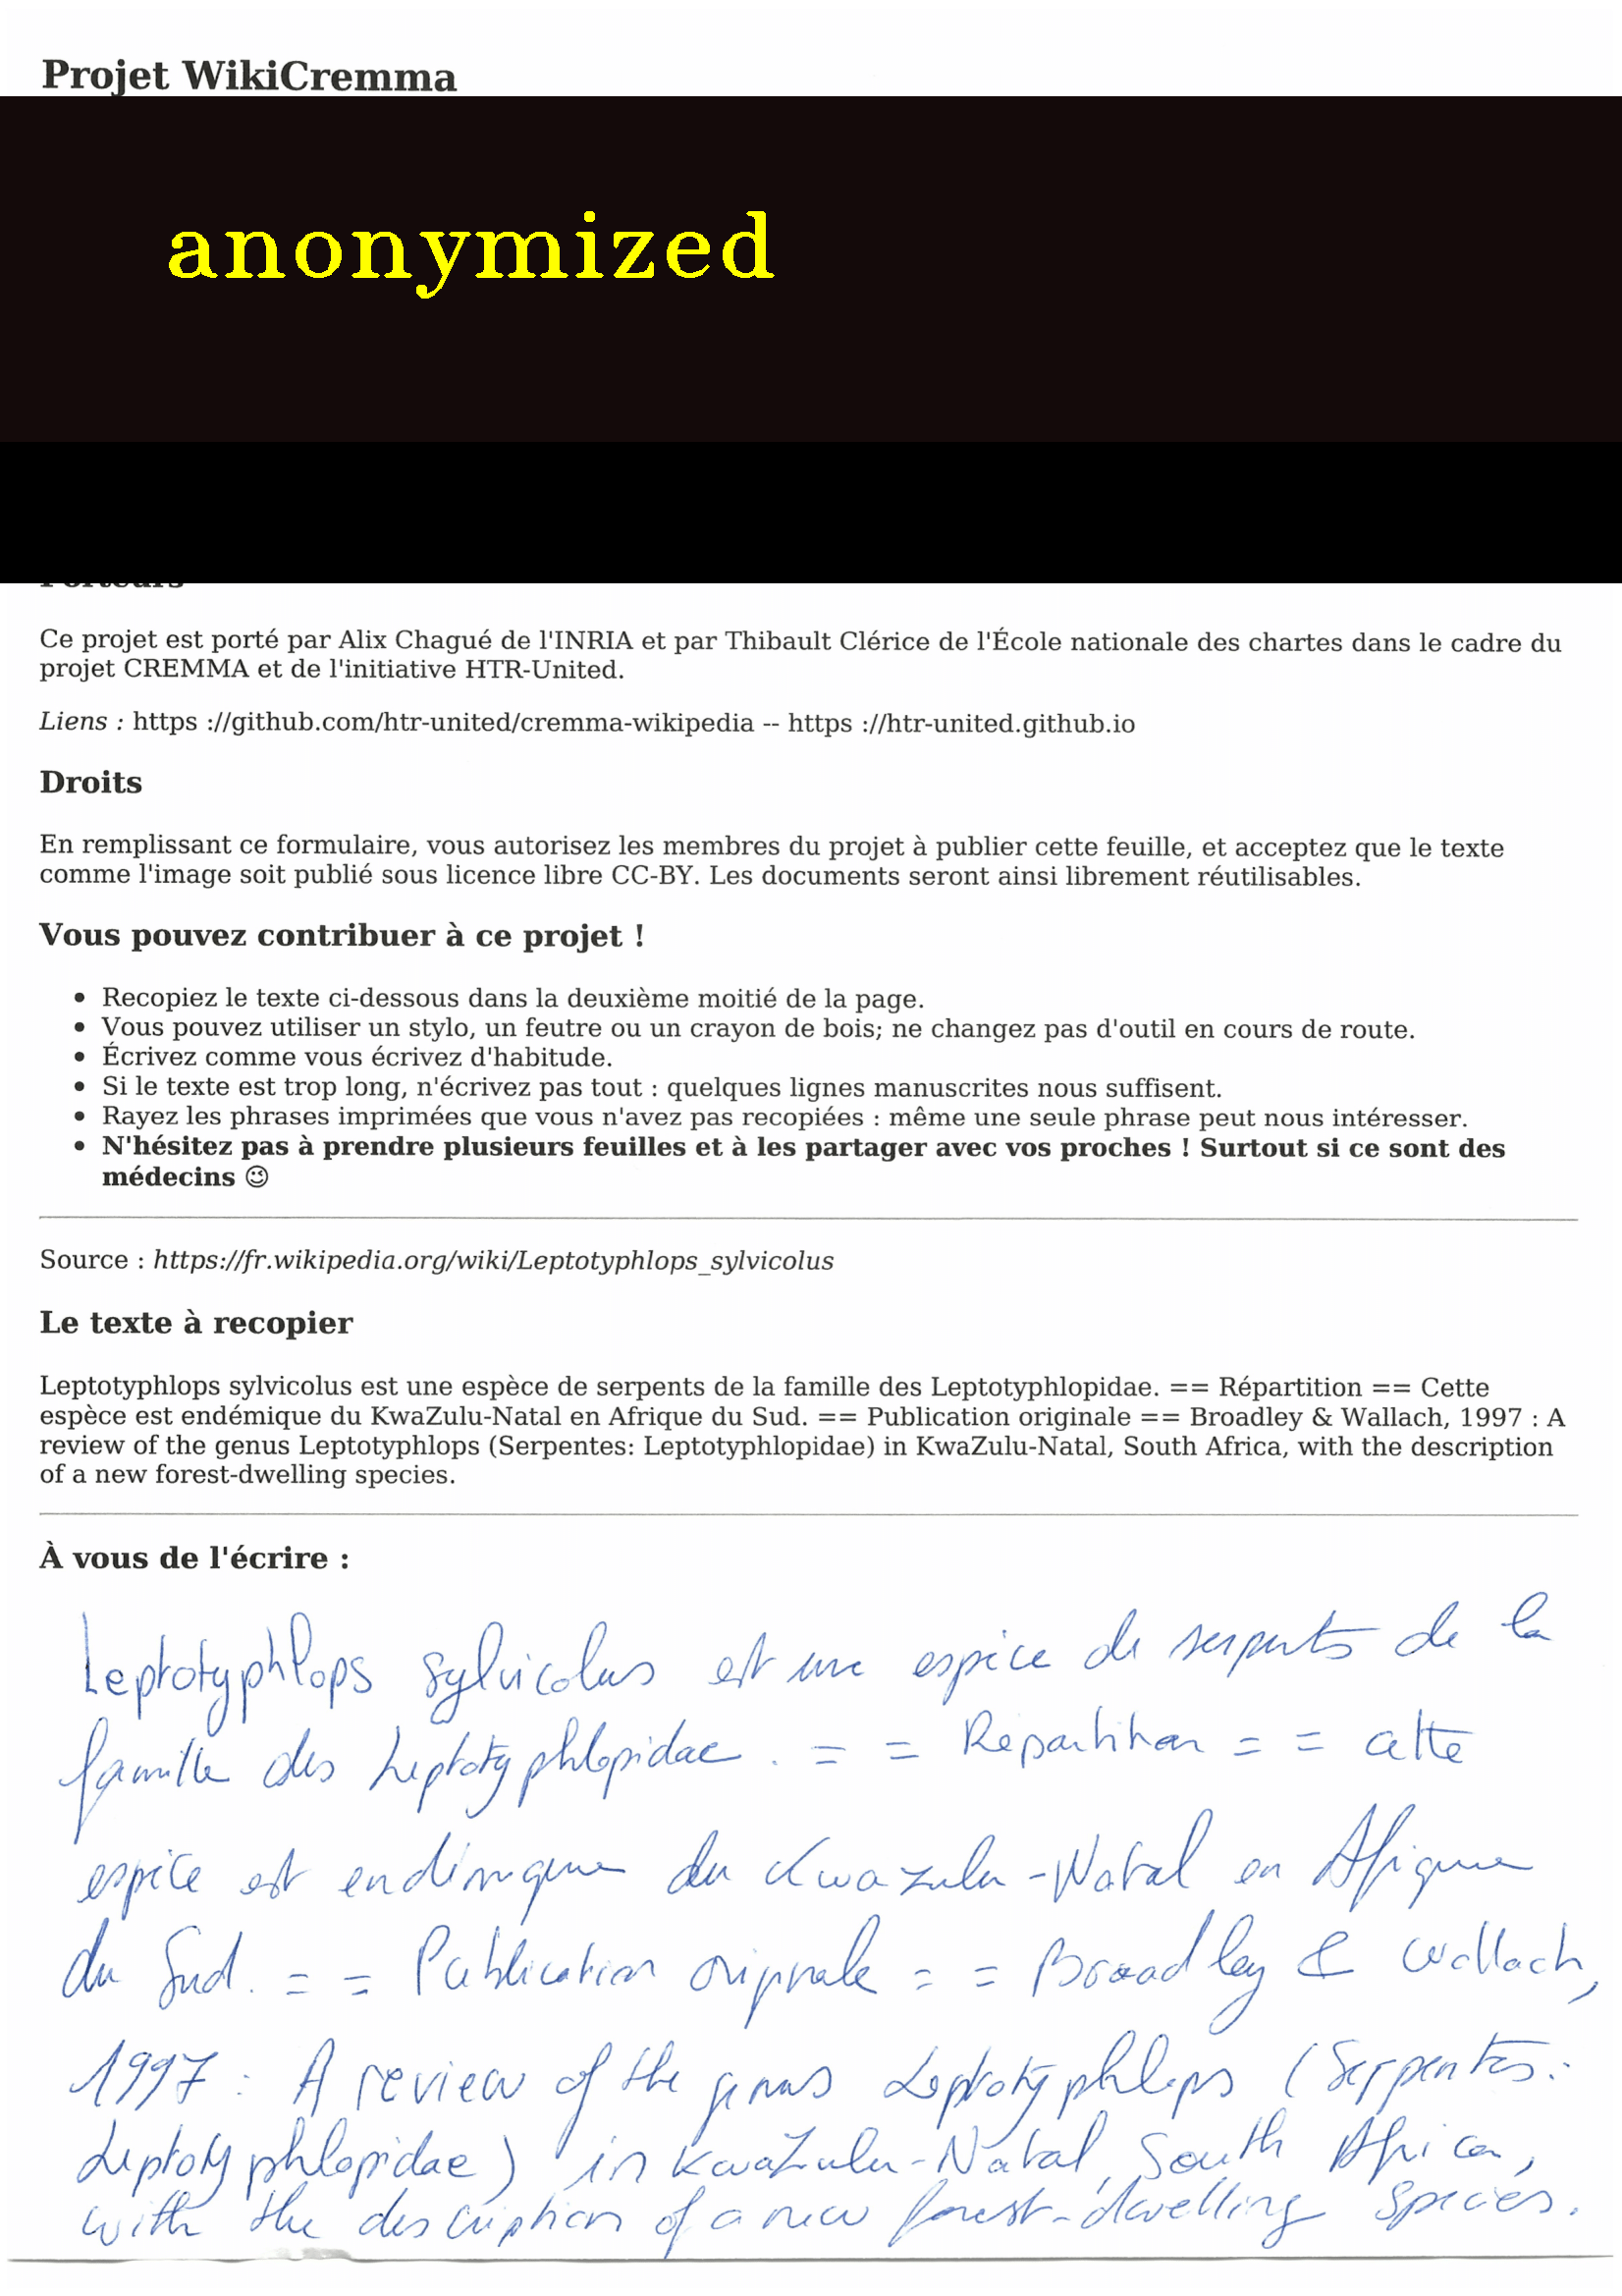 Projet WikiCremma
anonymized
Porteurs
Ce projet est porté par Alix Chagué de l'INRIA et par Thibault Clérice de l'École nationale des chartes dans le cadre du
projet CREMMA et de l'initiative HTR-United.
Liens : https ://github.com/htr-united/cremma-wikipedia -- https ://htr-united.github.io
Droits
En remplissant ce formulaire, vous autorisez les membres du projet à publier cette feuille, et acceptez que le texte
comme l'image soit publié sous licence libre CC-BY. Les documents seront ainsi librement réutilisables.
Vous pouvez contribuer à ce projet !
• Recopiez le texte ci-dessous dans la deuxième moitié de la page.
• Vous pouvez utiliser un stylo, un feutre ou un crayon de bois; ne changez pas d'outil en cours de route.
• Écrivez comme vous écrivez d'habitude.
• Si le texte est trop long, n'écrivez pas tout : quelques lignes manuscrites nous suffisent.
• Rayez les phrases imprimées que vous n'avez pas recopiées : même une seule phrase peut nous intéresser.
• N'hésitez pas à prendre plusieurs feuilles et à les partager avec vos proches ! Surtout si ce sont des
médecins 😉
Source : https://fr.wikipedia.org/wiki/Leptotyphlops_sylvicolus
Le texte à recopier
Leptotyphlops sylvicolus est une espèce de serpents de la famille des Leptotyphlopidae. == Répartition == Cette
espèce est endémique du KwaZulu-Natal en Afrique du Sud. == Publication originale == Broadley & Wallach, 1997 : A
review of the genus Leptotyphlops (Serpentes: Leptotyphlopidae) in KwaZulu-Natal, South Africa, with the description
of a new forest-dwelling species.
À vous de l'écrire :
Leptotyphlops sylvicolus est une espèce de serpents de la
famille des Leptotyphlopidae. = = Répartition = = cette
espèce est endémique du KwaZulu-Natal en Afrique
du Sud. = = Publication originale = = Broadley & Wallach,
1997 : A review of the genus Leptotyphlops (Serpentes :
Leptotyphlopidae) in KwaZulu-Natal, South Africa,
with the description of a new forest-dwelling species.